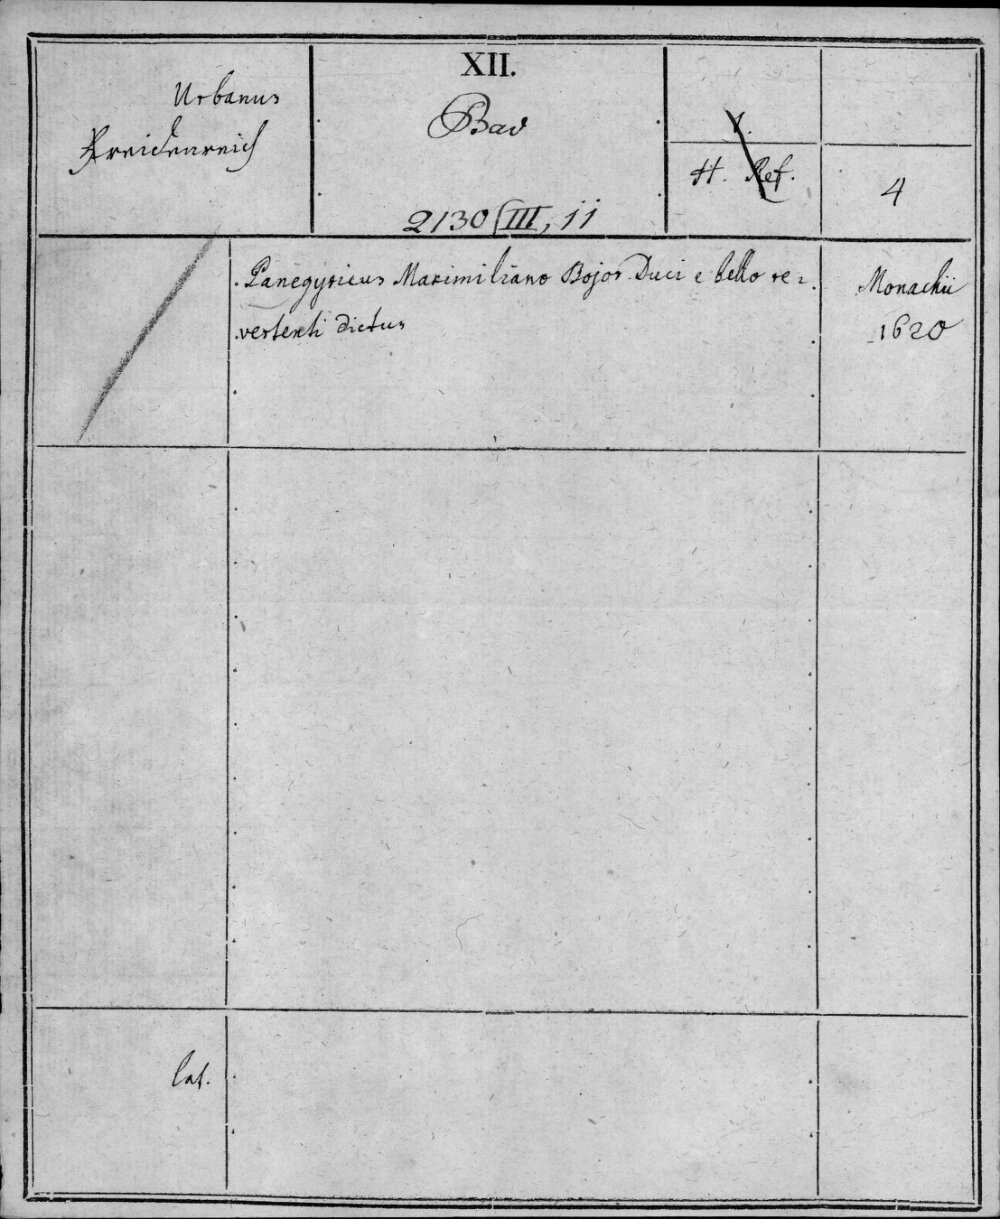 Urbanus
Kreidenreich
XII.
Bav
2130 III, 11
1.
H. Ref.
4
Panegyricus Maximiliano Bojor. Duci e bello re-
vertenti dictus
Monachii
1620
lat.